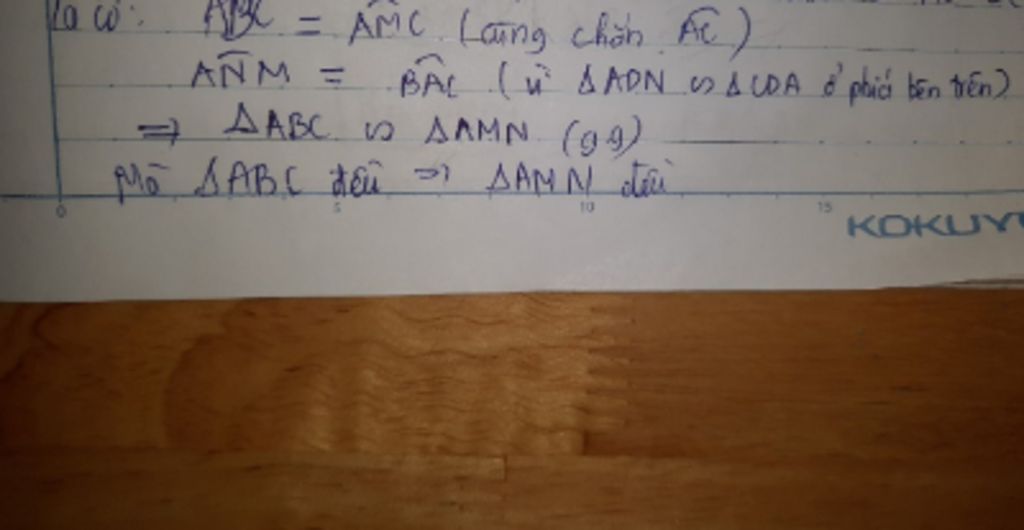 Ta có: ABC = AMC (cùng chắn AC)
ANM = BAC (vì ΔADN ∽ ΔCDA ở phía bên trên)
=> ΔABC ∽ ΔAMN (gg)
Mà ΔABC đều => ΔAMN đều
0 5 10 15
KOKUY